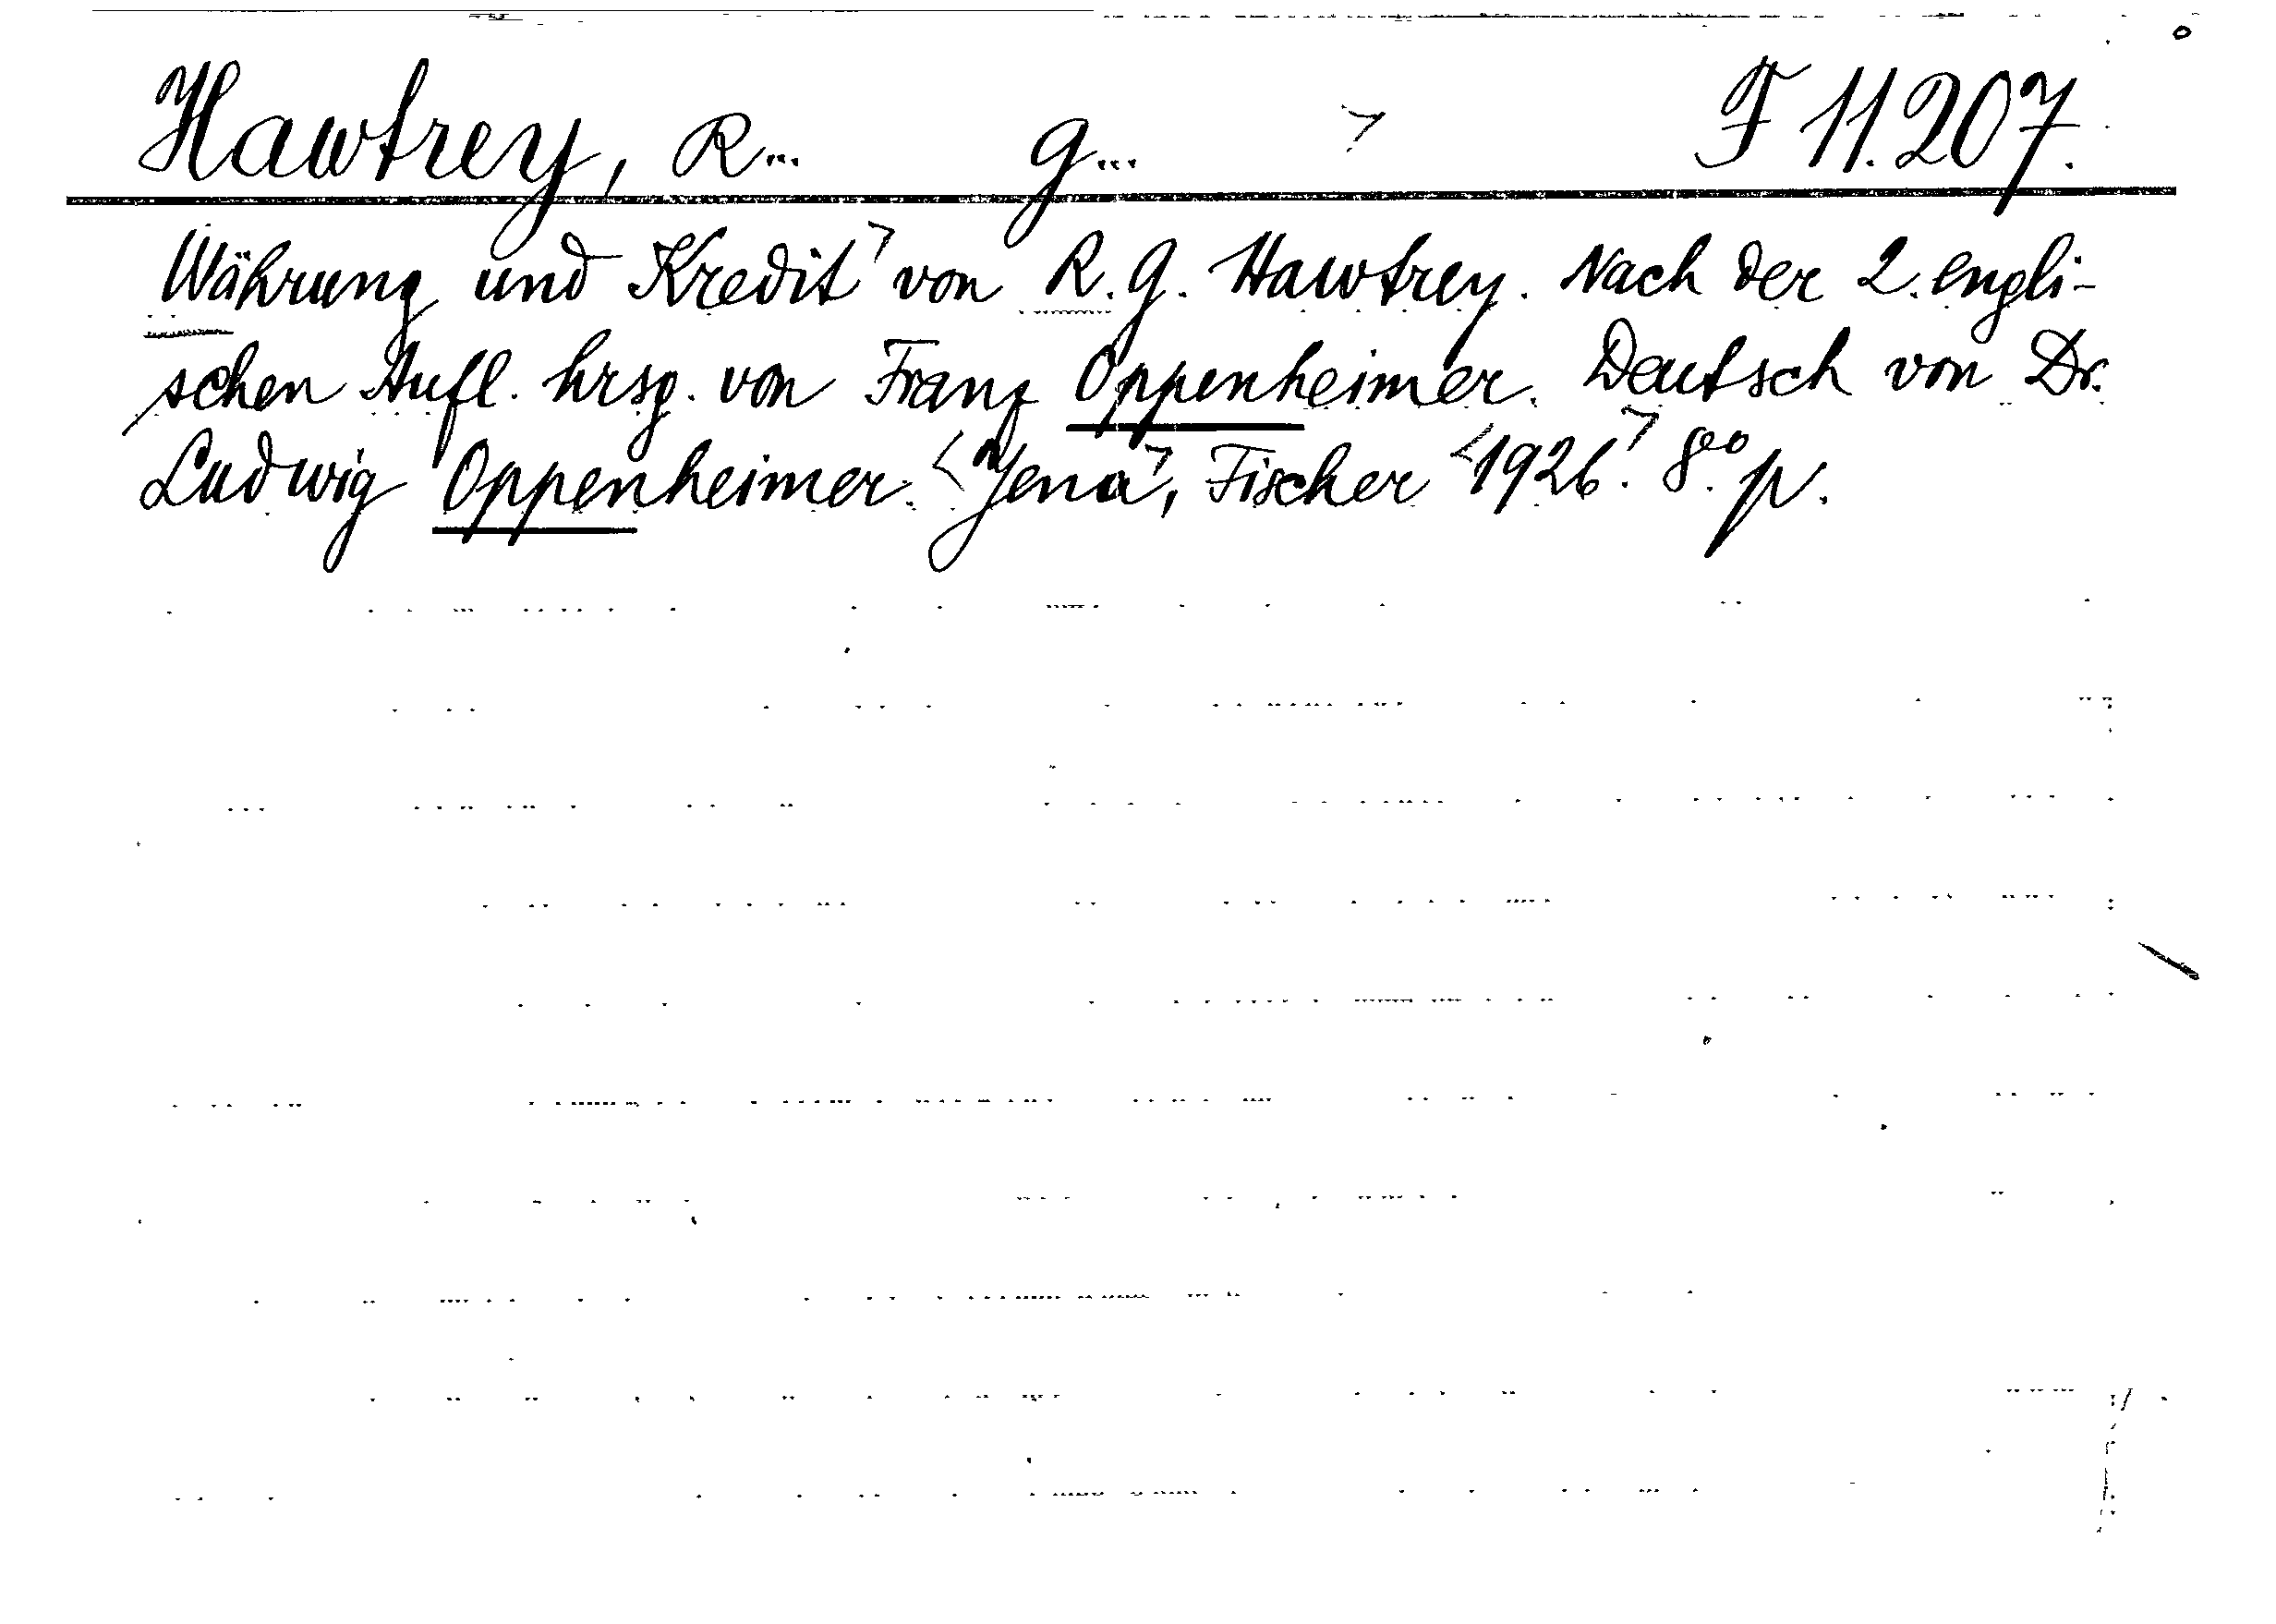 Hawtrey, R... G... > F 11.207.
Währung und Kredit> von R. G. Hawtrey. Nach der 2. engli-
schen Aufl. hrsg. von Franz Oppenheimer. Deutsch von Dr.
Ludwig Oppenheimer. <Jena>, Fischer <1926.> 8°. p.